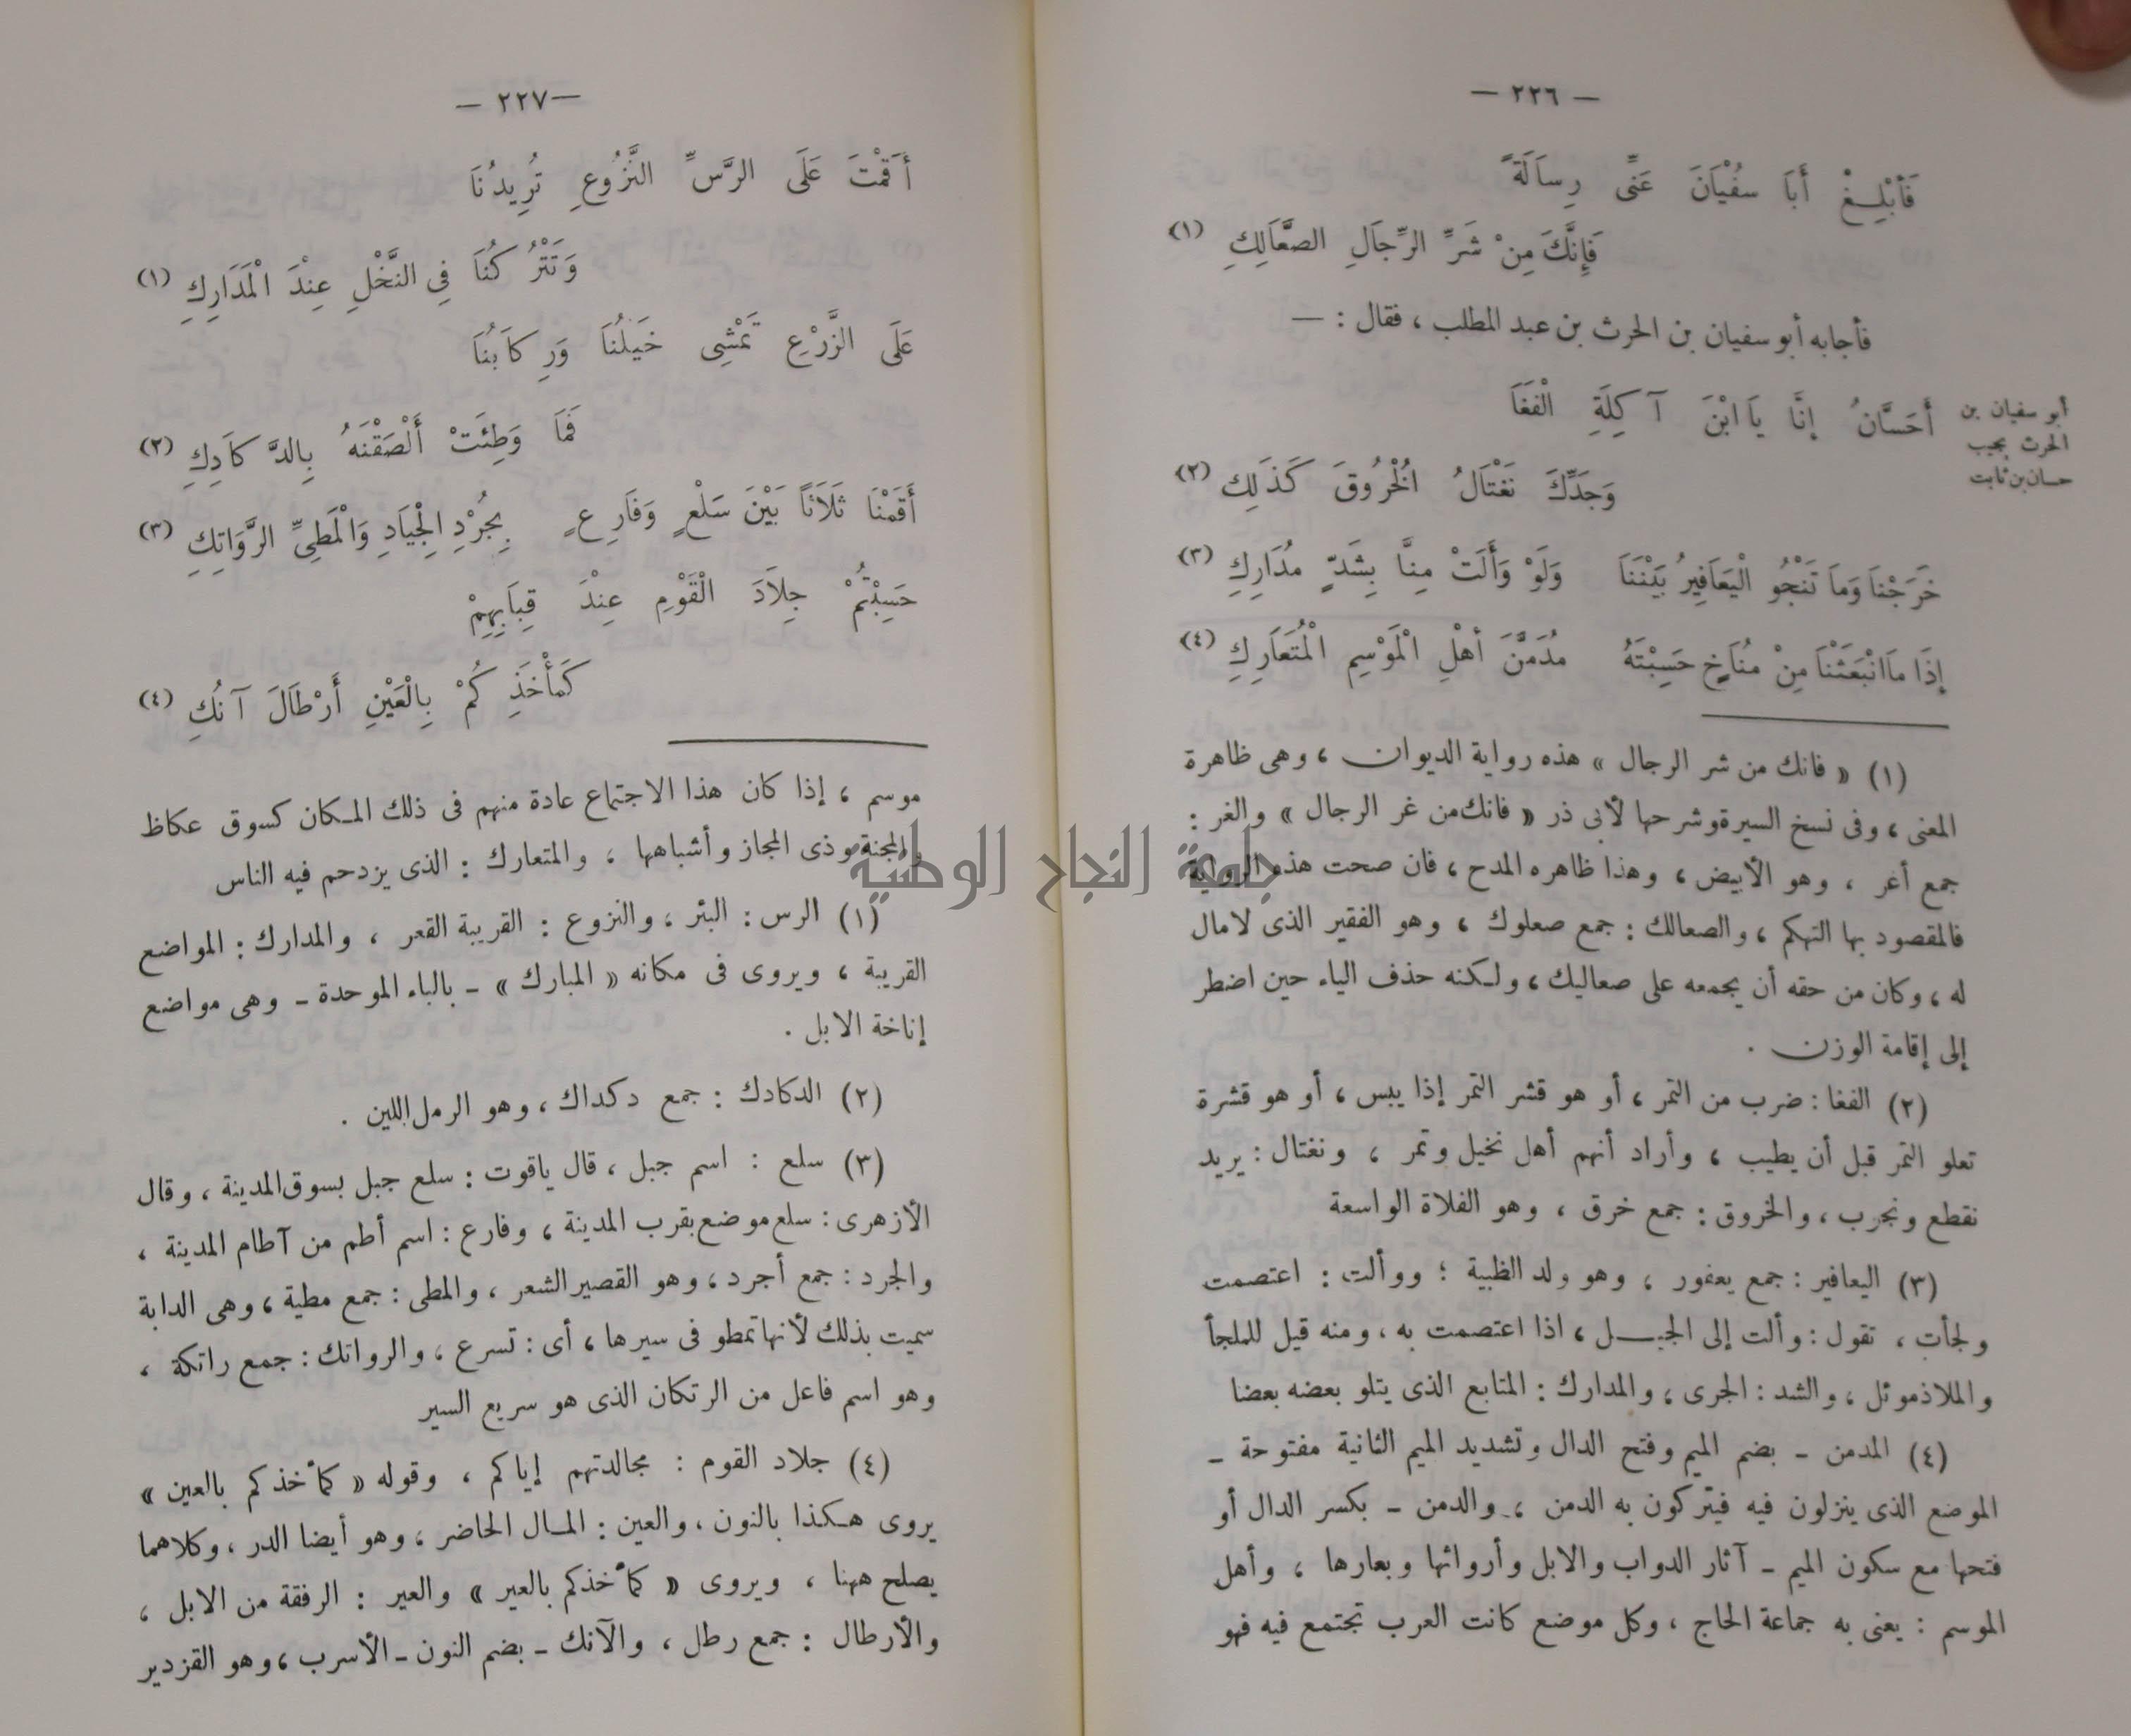 — ٢٢٦ —
فَأَبْلِغْ أَبَا سُفْيَانَ عَنِّى رِسَالَةً
فَإِنَّكَ مِنْ شَرِّ الرِّجَالِ الصَّعَالِكِ (١)
فأجابه أبو سفيان بن الحرث بن عبد المطلب ، فقال : —
أبو سفيان بن
الحرث يجيب
حسان بن ثابت
أَحَسَّانُ إِنَّا يَا ابْنَ آكِلَةِ الْفَغَا
وَجَدِّكَ نَغْتَالُ الْخُرُوقَ كَذَلِكِ (٢)
خَرَجْنَا وَمَا تَنْجُو الْيَعَافِيرُ بَيْنَنَا وَلَوْ وَأَلَتْ مِنَّا بِشَدٍّ مُدَارِكِ (٣)
إِذَا مَا انْبَعَثْنَا مِنْ مُنَاخٍ حَسِبْتَهُ مُدَمَّنَ أَهْلِ الْمَوْسِمِ الْمُتَعَارِكِ (٤)
(١) « فانك من شر الرجال » هذه رواية الديوان ، وهى ظاهرة
المعنى ، وفى نسخ السيرة وشرحها لأبى ذر « فانك من غر الرجال » والغر :
جمع أغر ، وهو الأبيض ، وهذا ظاهره المدح ، فان صحت هذه الرواية
فالمقصود بها التهكم ، والصعالك : جمع صعلوك ، وهو الفقير الذى لا مال
له ، وكان من حقه أن يجمعه على صعاليك ، ولكنه حذف الياء حين اضطر
إلى إقامة الوزن .
(٢) الفغا : ضرب من التمر ، أو هو قشر التمر إذا يبس ، أو هو قشرة
تعلو التمر قبل أن يطيب ، وأراد أنهم أهل نخيل وتمر ، ونغتال : يريد
نقطع ونجرب ، والخروق : جمع خرق ، وهو الفلاة الواسعة
(٣) اليعافير : جمع يعفور ، وهو ولد الظبية ؛ ووألت : اعتصمت
ولجأت ، تقول : وألت إلى الجبل ، اذا اعتصمت به ، ومنه قيل للملجأ
والملاذ موئل ، والشد : الجرى ، والمدارك : المتابع الذى يتلو بعضه بعضا
(٤) المدمن – بضم الميم وفتح الدال وتشديد الميم الثانية مفتوحة –
الموضع الذى ينزلون فيه فيتركون به الدمن ، والدمن – بكسر الدال أو
فتحها مع سكون الميم – آثار الدواب والابل وأرواثها وبعارها ، وأهل
الموسم : يعنى به جماعة الحاج ، وكل موضع كانت العرب تجتمع فيه فهو
— ٢٢٧ —
أَقَمْتَ عَلَى الرَّسِّ النَّزُوعِ تُرِيدُنَا
وَتَتْرُكُنَا فِى النَّخْلِ عِنْدَ الْمَدَارِكِ (١)
عَلَى الزَّرْعِ تَمْشِى خَيْلُنَا وَرِكَابُنَا
فَمَا وَطِئَتْ أَلْصَقْنَهُ بِالدَّكَادِكِ (٢)
أَقَمْنَا ثَلَاثًا بَيْنَ سَلْعٍ وَفَارِعٍ بِجُرْدِ الْجِيَادِ وَالْمَطِىِّ الرَّوَاتِكِ (٣)
حَسِبْتُمْ جِلَادَ الْقَوْمِ عِنْدَ قِبَابِهِمْ
كَمَأْخَذِكُمْ بِالْعَيْنِ أَرْطَالَ آنُكِ (٤)
موسم ، إذا كان هذا الاجتماع عادة منهم فى ذلك المكان كسوق عكاظ
والمجنة وذى المجاز وأشباهها ، والمتعارك : الذى يزدحم فيه الناس
(١) الرس : البئر ، والنزوع : القريبة القعر ، والمدارك : المواضع
القريبة ، ويروى فى مكانه « المبارك » – بالباء الموحدة – وهى مواضع
إناخة الابل .
(٢) الدكادك : جمع دكداك ، وهو الرمل اللين .
(٣) سلع : اسم جبل ، قال ياقوت : سلع جبل بسوق المدينة ، وقال
الأزهرى : سلع موضع بقرب المدينة ، وفارع : اسم أطم من آطام المدينة ،
والجرد : جمع أجرد ، وهو القصير الشعر ، والمطى : جمع مطية ، وهى الدابة
سميت بذلك لأنها تمطو فى سيرها ، أى : تسرع ، والرواتك : جمع راتكة ،
وهو اسم فاعل من الرتكان الذى هو سريع السير
(٤) جلاد القوم : مجالدتهم إياكم ، وقوله « كمأخذكم بالعين »
يروى هكذا بالنون ، والعين : المال الحاضر ، وهو أيضا الدر ، وكلاهما
يصلح ههنا ، ويروى « كمأخذكم بالعير » والعير : الرفقة من الابل ،
والأرطال : جمع رطل ، والآنك – بضم النون – الأسرب ، وهو القزدير
جامعة النجاح الوطنية